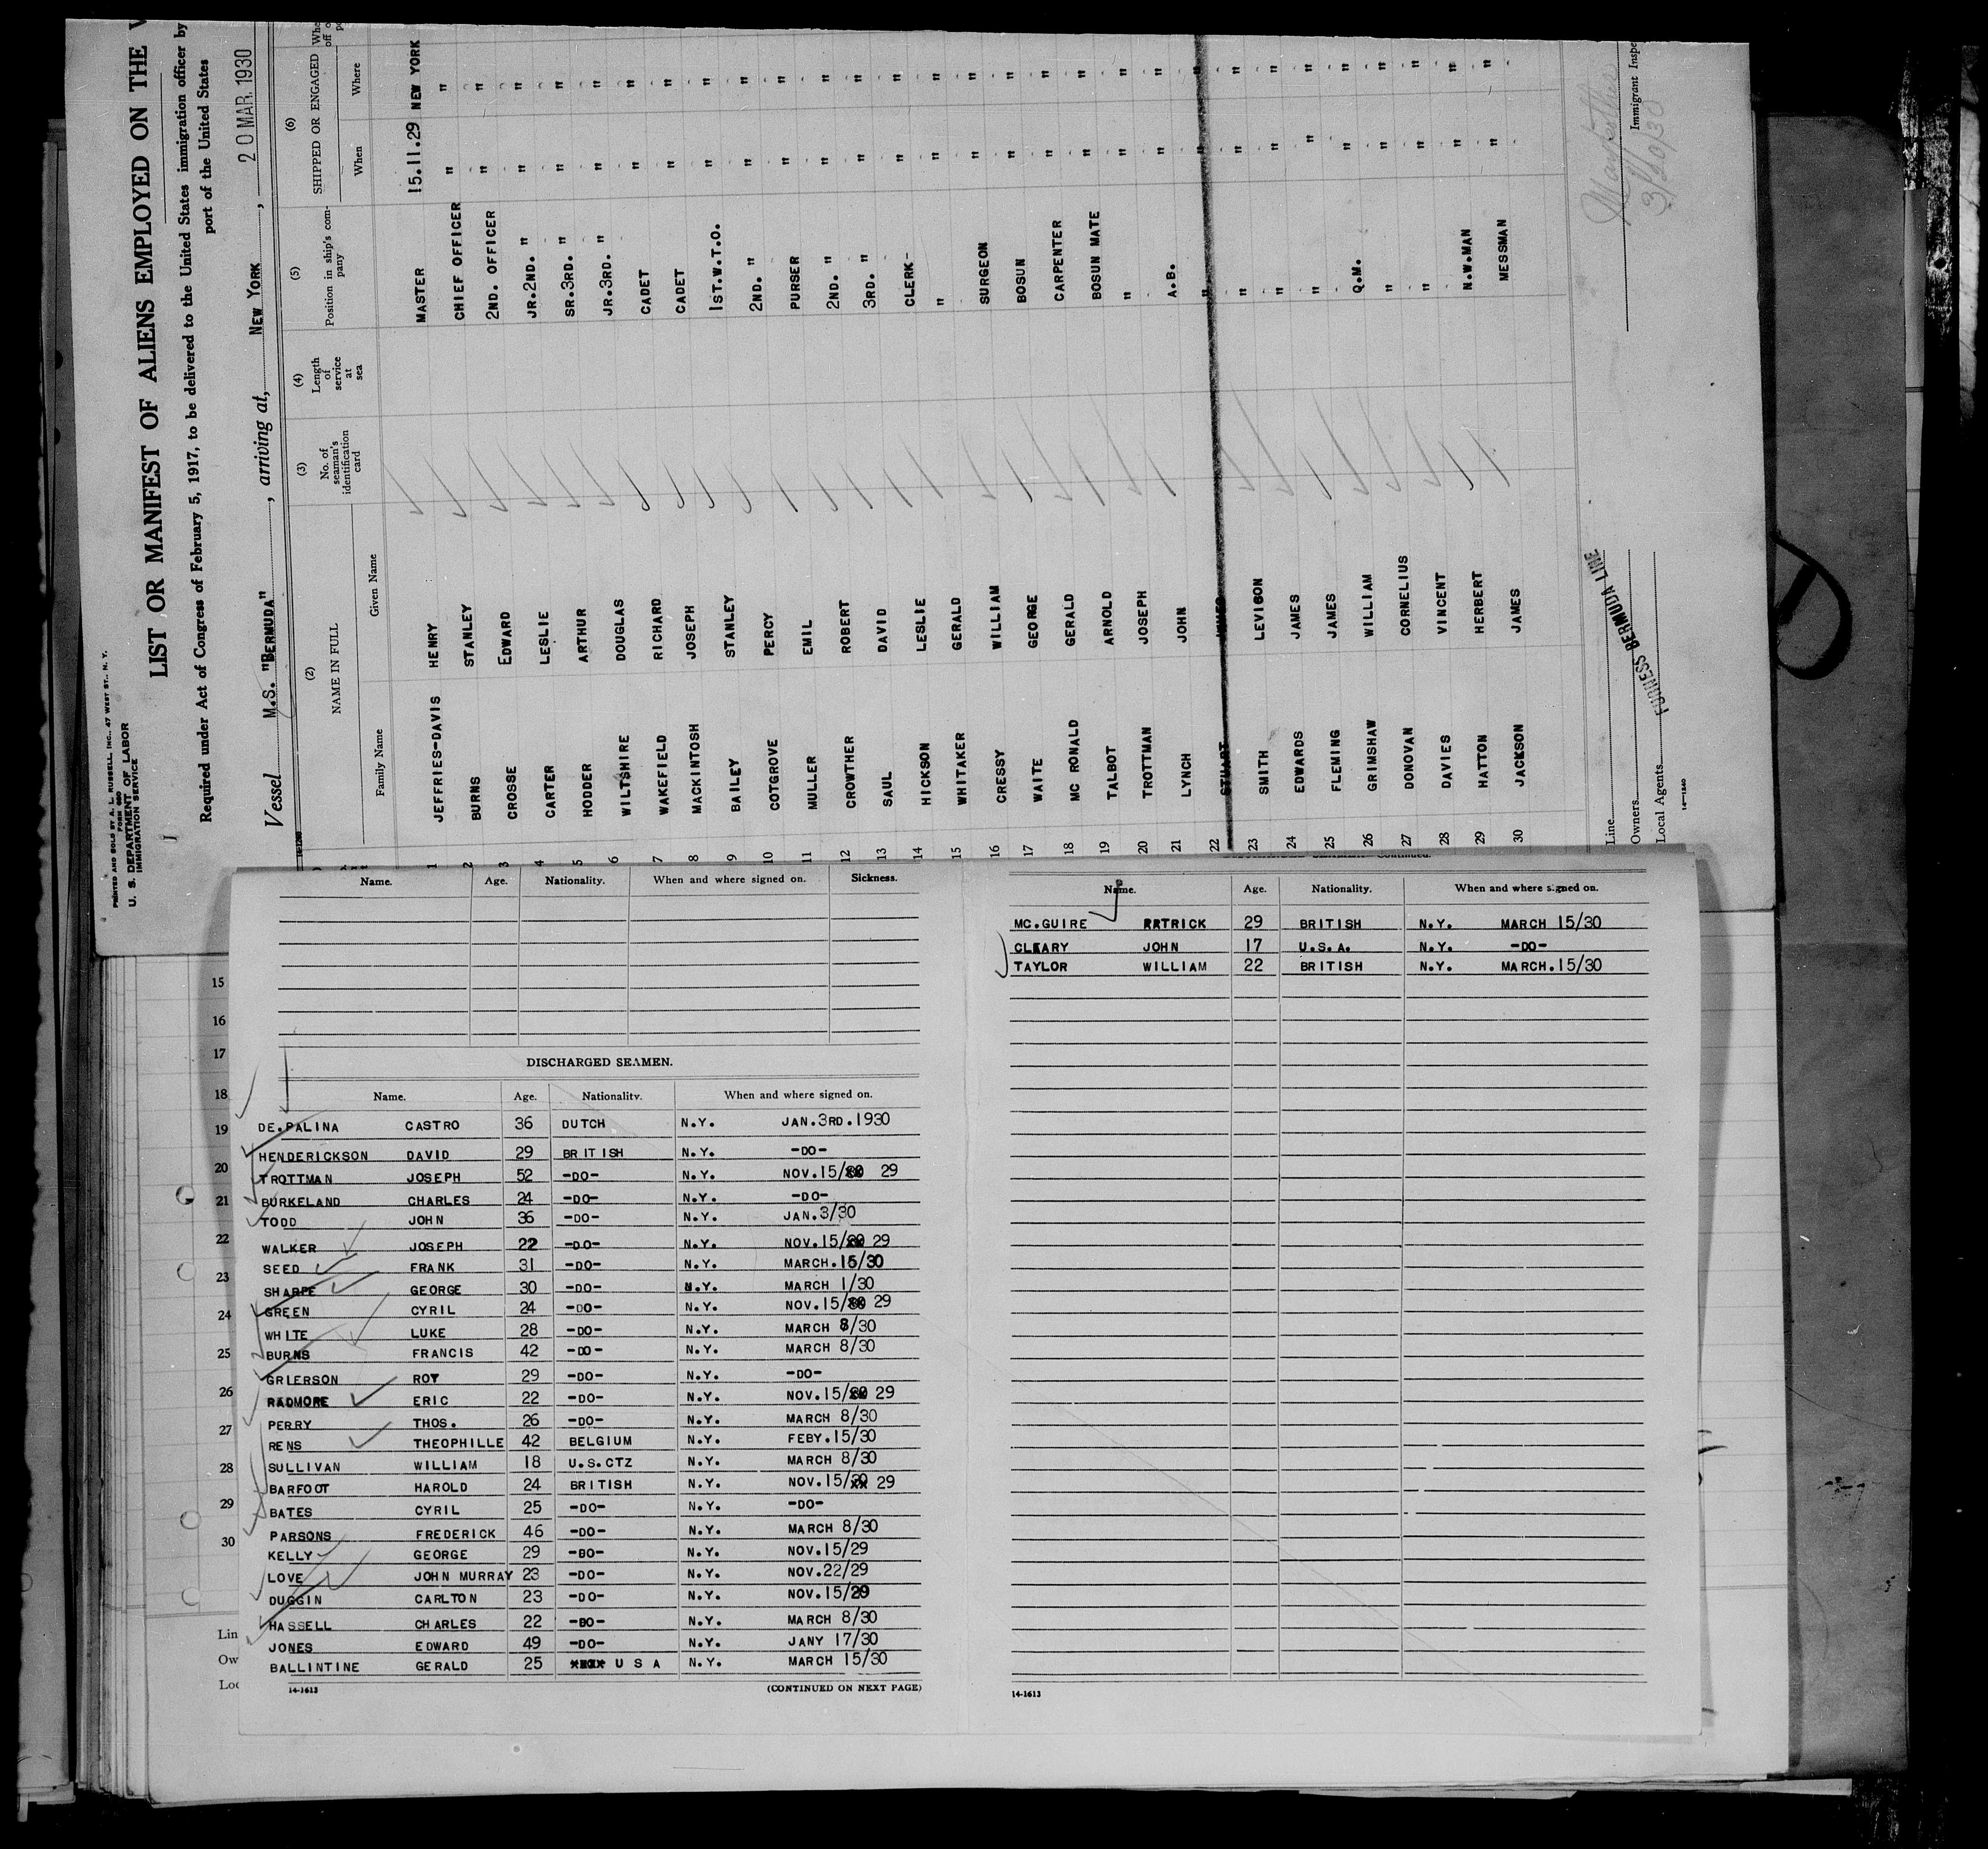 LIST OR MANIFEST OF ALIENS EMPLOYED ON THE
Required under Act of Congress of February 5, 1917, to be delivered to the United States immigration officer by
port of the United States
PRINTED AND SOLD BY A. L. RUSSELL, INC., 47 WEST ST., N. Y.
FORM 680
U. S. DEPARTMENT OF LABOR
IMMIGRATION SERVICE
Vessel M.S. "BERMUDA", arriving at, NEW YORK, 20 MAR. 1930
(2) (3) (4) (5) (6)
NAME IN FULL No. of seaman's identification card Length of service at sea Position in ship's company SHIPPED OR ENGAGED
Family Name Given Name When Where
1 JEFFRIES-DAVIS HENRY MASTER 15.11.29 NEW YORK
2 BURNS STANLEY CHIEF OFFICER " "
3 CROSSE EDWARD 2ND. OFFICER " "
4 CARTER LESLIE JR.2ND. " " "
5 HODDER ARTHUR SR.3RD. " " "
6 WILTSHIRE DOUGLAS JR.3RD. " " "
7 WAKEFIELD RICHARD CADET " "
8 MACKINTOSH JOSEPH CADET " "
9 BAILEY STANLEY 1ST.W.T.O. " "
10 COTGROVE PERCY 2ND. " " "
11 MULLER EMIL PURSER " "
12 CROWTHER ROBERT 2ND. " " "
13 SAUL DAVID 3RD. " " "
14 HICKSON LESLIE CLERK- " "
15 WHITAKER GERALD " " "
16 CRESSY WILLIAM SURGEON " "
17 WAITE GEORGE BOSUN " "
18 MC RONALD GERALD CARPENTER " "
19 TALBOT ARNOLD BOSUN MATE " "
20 TROTTMAN JOSEPH " " "
21 LYNCH JOHN A.B. " "
22 STUART " " "
23 SMITH LEVISON " " "
24 EDWARDS JAMES " " "
25 FLEMING JAMES " " "
26 GRIMSHAW WILLIAM Q.M. " "
27 DONOVAN CORNELIUS " " "
28 DAVIES VINCENT " " "
29 HATTON HERBERT N.W.MAN " "
30 JACKSON JAMES MESSMAN " "
Line
Owners FURNESS BERMUDA LINE
Local Agents
14-1240
3/20/30
Immigrant Inspe
Name. Age. Nationality. When and where signed on. Sickness.
DISCHARGED SEAMEN.
Name. Age. Nationality. When and where signed on.
DE.PALINA CASTRO 36 DUTCH N.Y. JAN.3RD.1930
HENDERICKSON DAVID 29 BRITISH N.Y. -DO-
TROTTMAN JOSEPH 52 -DO- N.Y. NOV.15/30 29
BURKELAND CHARLES 24 -DO- N.Y. -DO-
TODD JOHN 36 -DO- N.Y. JAN.3/30
WALKER JOSEPH 22 -DO- N.Y. NOV.15/30 29
SEED FRANK 31 -DO- N.Y. MARCH.15/30
SHARPE GEORGE 30 -DO- N.Y. MARCH 1/30
GREEN CYRIL 24 -DO- N.Y. NOV.15/30 29
WHITE LUKE 28 -DO- N.Y. MARCH 8/30
BURNS FRANCIS 42 -DO- N.Y. MARCH 8/30
GRIERSON ROY 29 -DO- N.Y. -DO-
RADMORE ERIC 22 -DO- N.Y. NOV.15/30 29
PERRY THOS. 26 -DO- N.Y. MARCH 8/30
RENS THEOPHILLE 42 BELGIUM N.Y. FEBY.15/30
SULLIVAN WILLIAM 18 U.S.CTZ N.Y. MARCH 8/30
BARFOOT HAROLD 24 BRITISH N.Y. NOV.15/30 29
BATES CYRIL 25 -DO- N.Y. -DO-
PARSONS FREDERICK 46 -DO- N.Y. MARCH 8/30
KELLY GEORGE 29 -BO- N.Y. NOV.15/29
LOVE JOHN MURRAY 23 -DO- N.Y. NOV.22/29
DUGGIN CARLTON 23 -DO- N.Y. NOV.15/29
HASSELL CHARLES 22 -BO- N.Y. MARCH 8/30
JONES EDWARD 49 -DO- N.Y. JANY 17/30
BALLINTINE GERALD 25 USA N.Y. MARCH 15/30
14-1613 (CONTINUED ON NEXT PAGE)
Name. Age. Nationality. When and where signed on.
MC.GUIRE PATRICK 29 BRITISH N.Y. MARCH 15/30
CLEARY JOHN 17 U.S.A. N.Y. -DO-
TAYLOR WILLIAM 22 BRITISH N.Y. MARCH.15/30
14-1613
15
16
17
18
19
20
21
22
23
24
25
26
27
28
29
30
Lin
Ow
Loc